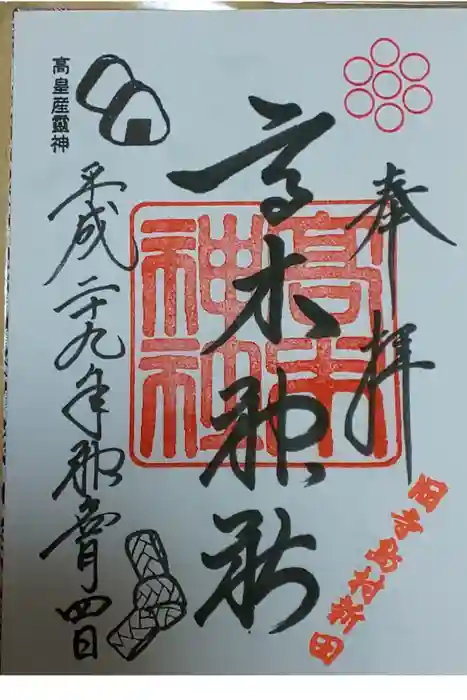 奉拝
旧寺島村新田
高木神社
高木神社
高皇産靈神
平成二十九年神無月四日